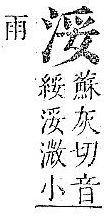 浽
蘇灰切音
綏浽溦小
雨